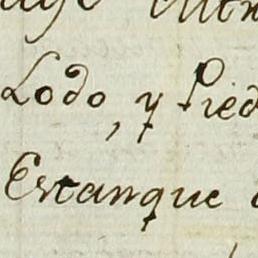 Lodo, y Pied
Estanque